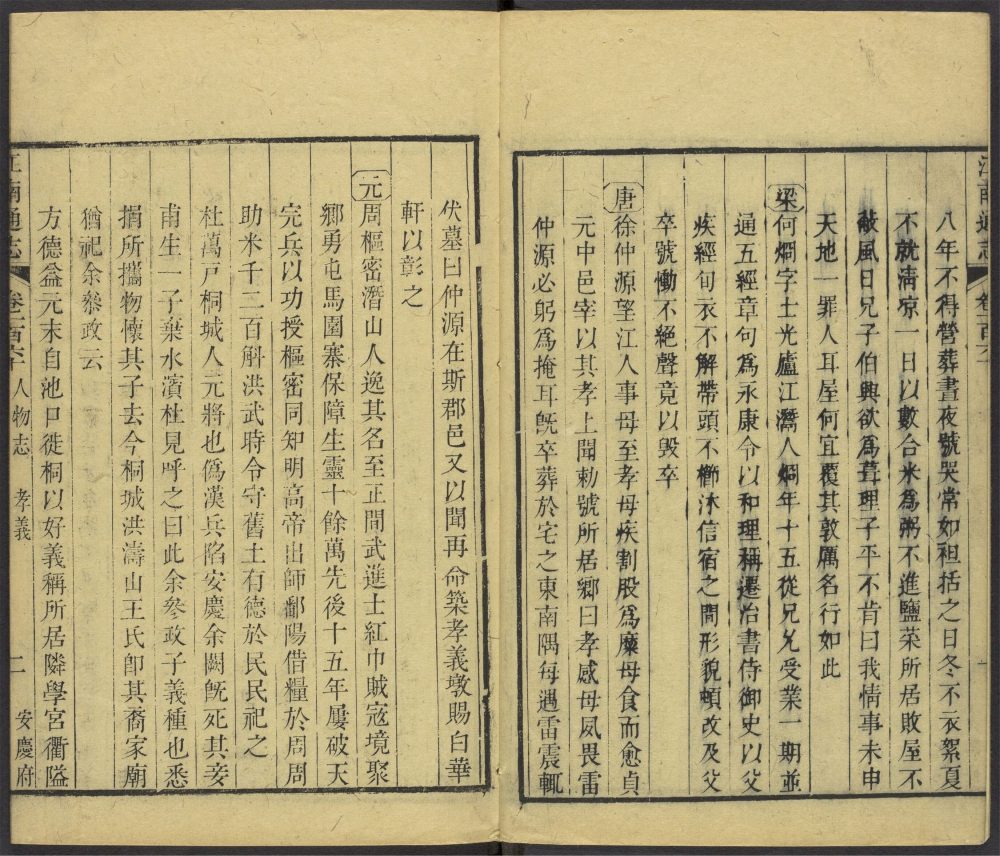 江南通志 卷一百六
八年不得營葬晝夜號哭常如袒括之日冬不衣絮夏
不就淸凉一日以數合米爲粥不進鹽菜所居敗屋不
蔽風日兄子伯興欲爲葺理子平不肯曰我情事未申
天地一罪人耳屋何宜覆其敦厲名行如此
梁何烱字士光廬江灊人烱年十五從兄允受業一期並
通五經章句爲永康令以和理稱遷治書侍御史以父
疾經旬衣不解帶頭不櫛沐信宿之間形貌頓改及父
卒號慟不絕聲竟以毁卒
唐徐仲源望江人事母至孝母疾割股爲糜母食而愈貞
元中邑宰以其孝上聞勅號所居鄉曰孝感母夙畏雷
仲源必躬爲掩耳旣卒葬於宅之東南隅每遇雷震輒
伏墓曰仲源在斯郡邑又以聞再命築孝義墩賜白華
軒以彰之
元周樞密潛山人逸其名至正間武進士紅巾賊寇境聚
鄉勇屯馬園寨保障生靈十餘萬先後十五年屢破天
完兵以功授樞密同知明高帝出師鄱陽借糧於周周
助米千二百斛洪武時令守舊土有德於民民祀之
杜萬戸桐城人元將也僞漢兵陷安慶余闕旣死其妾
甫生一子棄水濵杜見呼之曰此余參政子義種也悉
捐所攜物懷其子去今桐城洪濤山王氏卽其裔家廟
猶祀余叅政云
方德益元末自池口徙桐以好義稱所居隣學宮衢隘
江南通志 卷一百六 人物志 孝義 二 安慶府